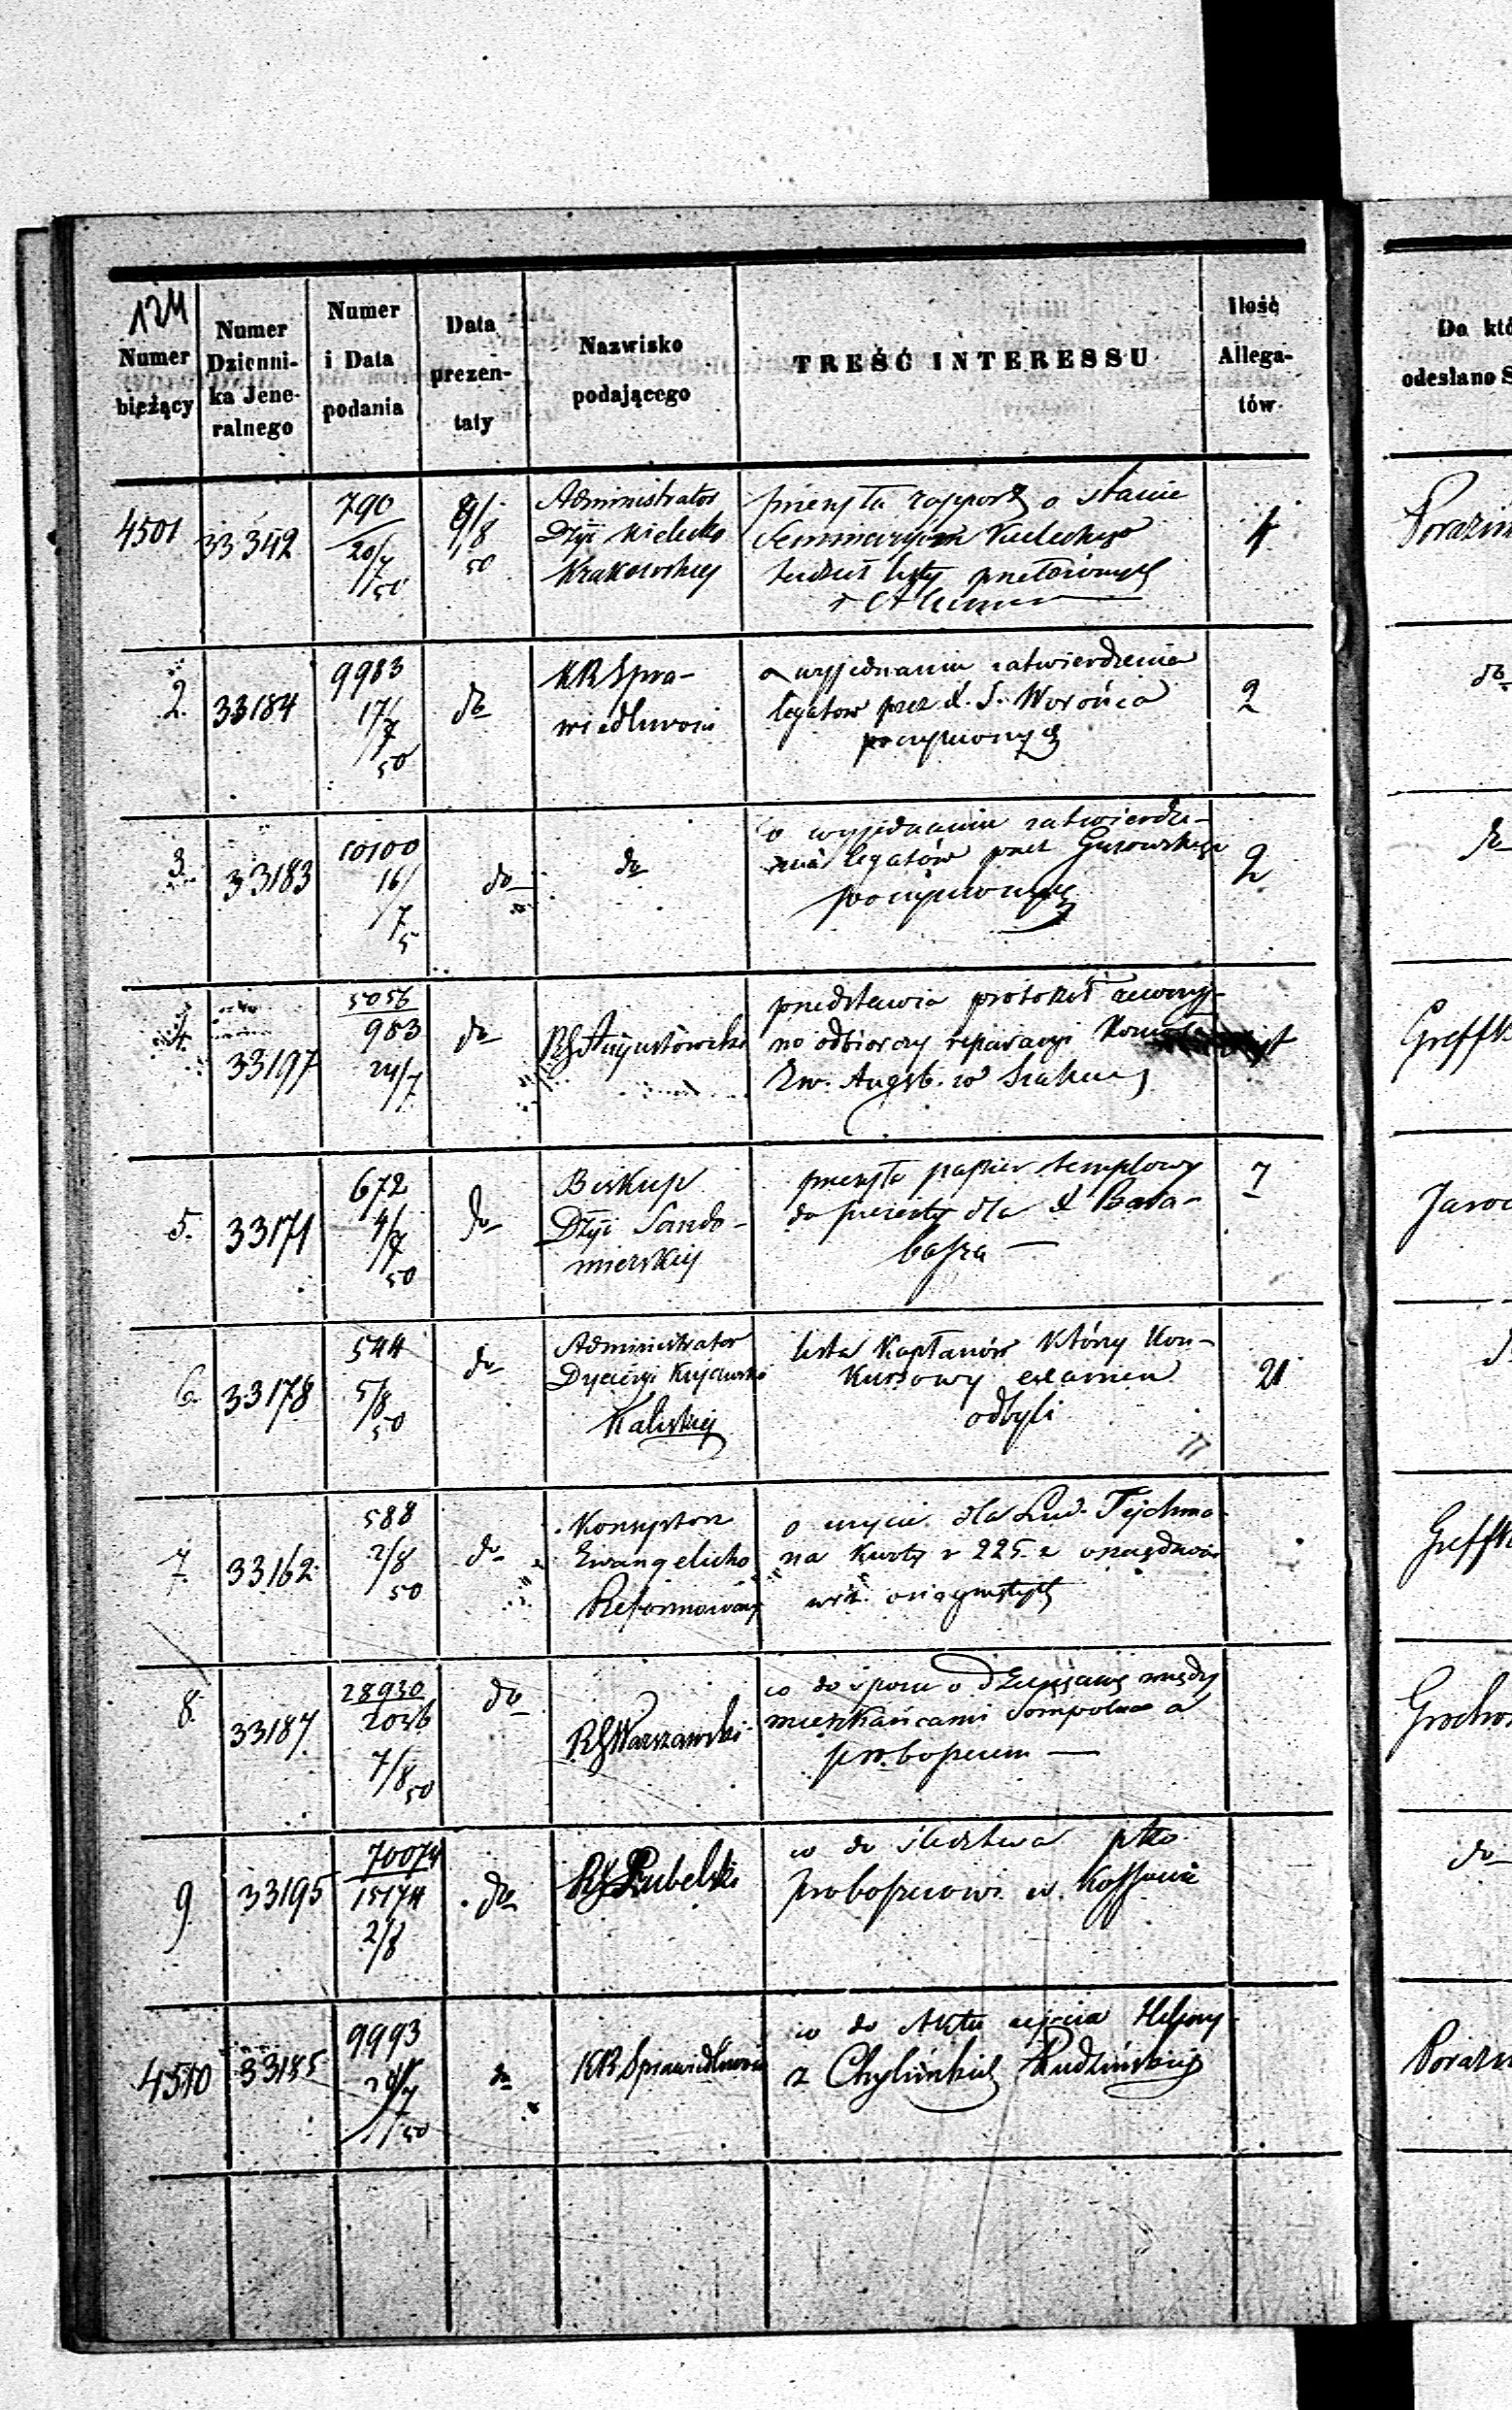 124
Numer
bieżący
Numer
Dzienni-
ka Jene-
ralnego
Numer
i Data
podania
Data
prezen-
taty
Nazwisko
podającego
TREŚĆ INTERESSU
Ilość
Allega-
tów
Do któ
odesłano S
4501
33342
790
20/7
50
9/8
50
Administrator
Dyi Kielecko
Krakowskiej
przesyła rapport o stanie
Seminaryum Kieleckiego
tudzież listy przełożonych
i
4
2.
33184
9983
17/7
50
do
KRSpra-
wiedliwości
o wyjednanie zatwierdzenia
legatów przez X. J. Worońca
poczynionych
2
do
3.
33183
10100
16/7
5
do
do
o wyjednanie zatwierdze-
nia legatów przez Gurowskiego
poczynionych
2
do
4.
33197
5056
983
24/7
do
RGAugustowski
przedstawia protokół
no odbiorczy reparacyi
Ew. Augsb. w
5.
33171
672
4/7
50
do
Biskup
Dyi Sando-
mierskiej
przesyła papier stemplowy
do dla X Bara-
basza
1
6.
33178
544
5/8
50
do
Administrator
Dyecezyi Kujawsko
Kaliskiej
lista Kapłanów Którzy Kon-
kursowy examen
odbyli
21
7.
33162
588
2/8
50
do
Konsystorz
Ewangelicko
Reformowany
o dla Lud. Tejchma-
na kwoty r 225 z
8.
33187
28930
2/8
7/8
50
do
RGWarszawski
co do sporu o dziesięcinę między
mieszkańcami Sompolna a
proboszczem
9
33195
70074
15174
2/8
do
RGLubelski
co do śledztwa ptko
proboszczowi w.
do
4510
33185
9993
50
do
KRSprawiedliwości
co do Aktu zejścia
z Chylińskich Rudzińskiej